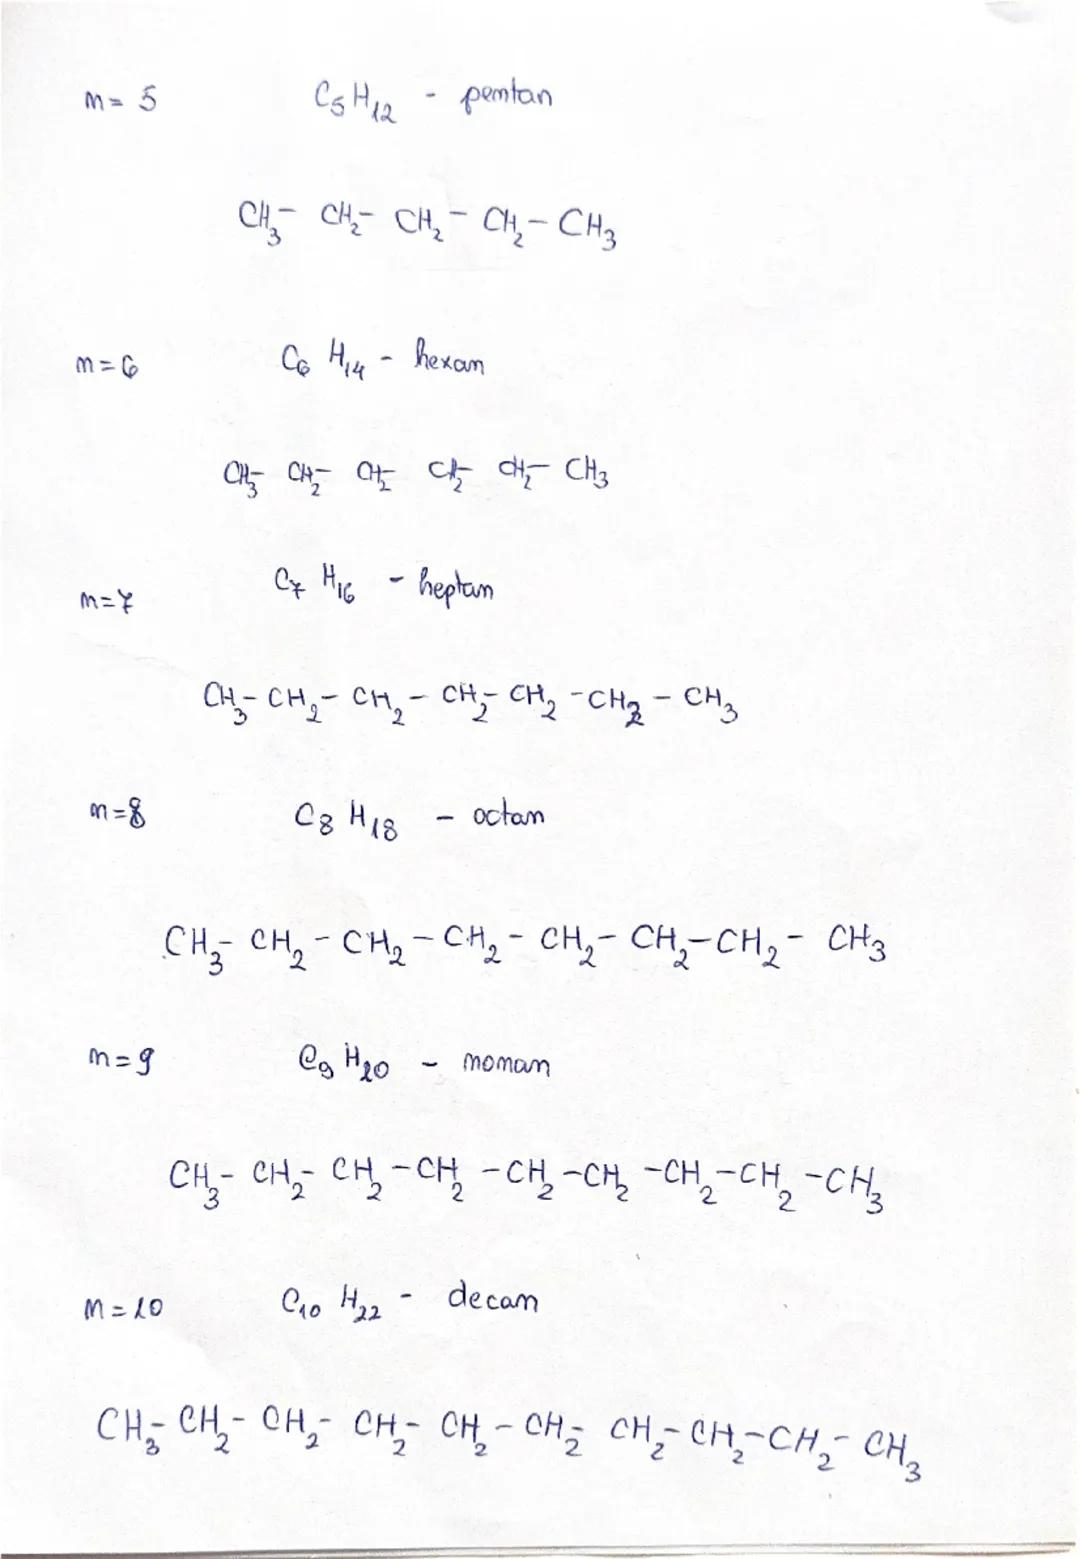 n= 5 C₅H₁₂ - pentan
CH₃- CH₂- CH₂- CH₂- CH₃
n=6 C₆ H₁₄ - hexan
CH₃- CH₂- CH₂- CH₂- CH₂- CH₃
n=7 C₇ H₁₆ - heptan
CH₃- CH₂- CH₂- CH₂- CH₂ -CH₂ - CH₃
n=8 C₈ H₁₈ - octan
CH₃- CH₂ - CH₂ - CH₂ - CH₂- CH₂-CH₂ - CH₃
n=9 C₉ H₂₀ - nonan
CH₃- CH₂- CH₂ -CH₂ -CH₂ -CH₂ -CH₂ -CH₂ -CH₃
n=10 C₁₀ H₂₂ - decan
CH₃- CH₂- CH₂- CH₂- CH₂ - CH₂- CH₂- CH₂-CH₂- CH₃